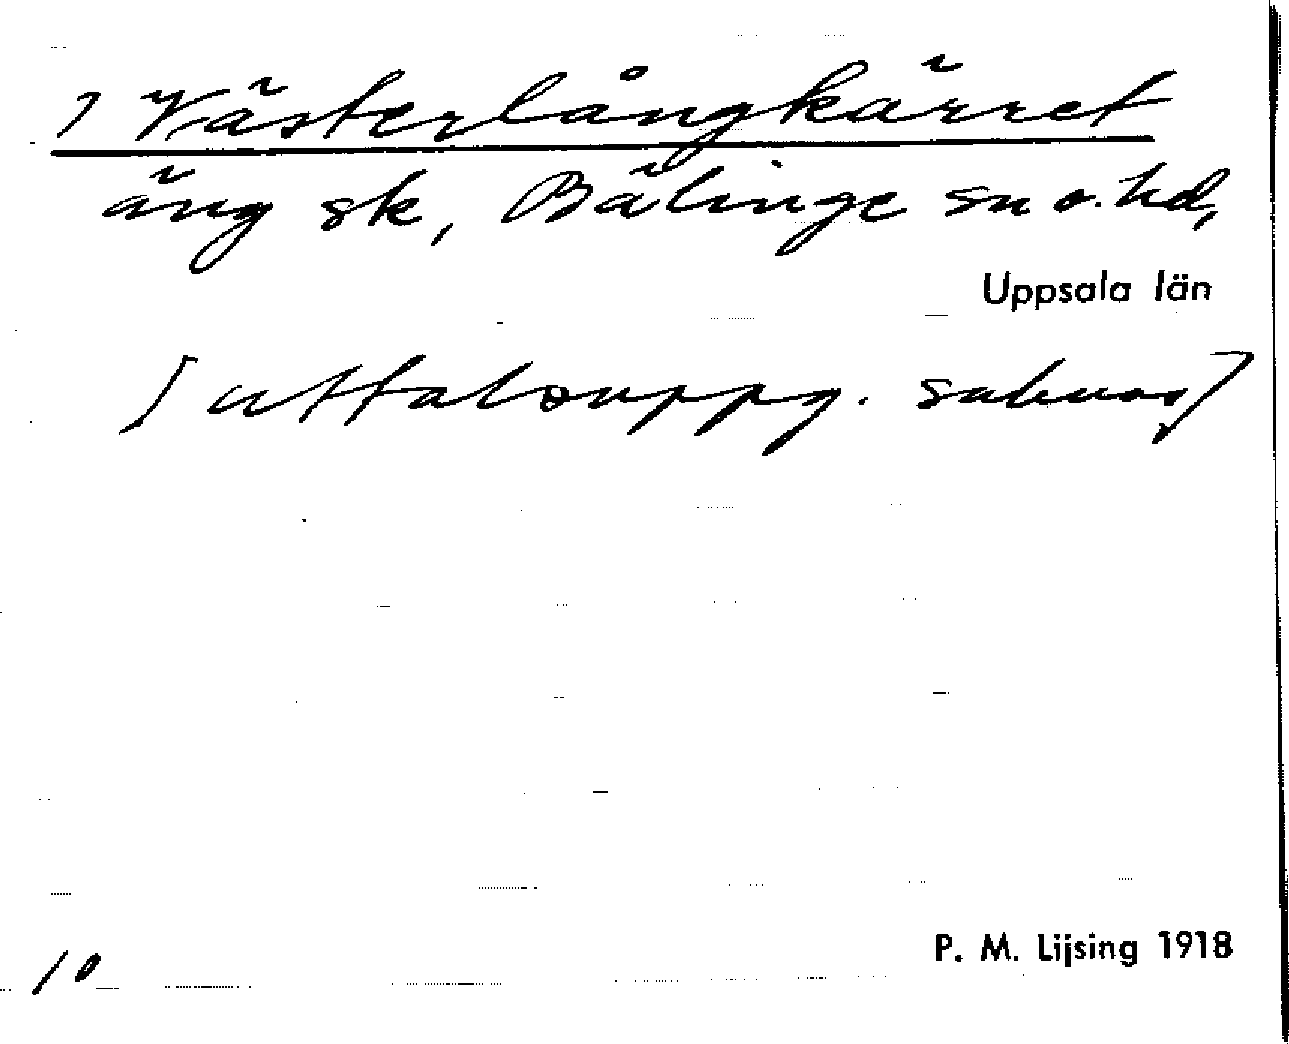 1 Västerlångkärret
äng sk, Bälinge sn o. hd,
Uppsala län
[uttalsuppg. saknas]
P. M. Lijsing 1918
10